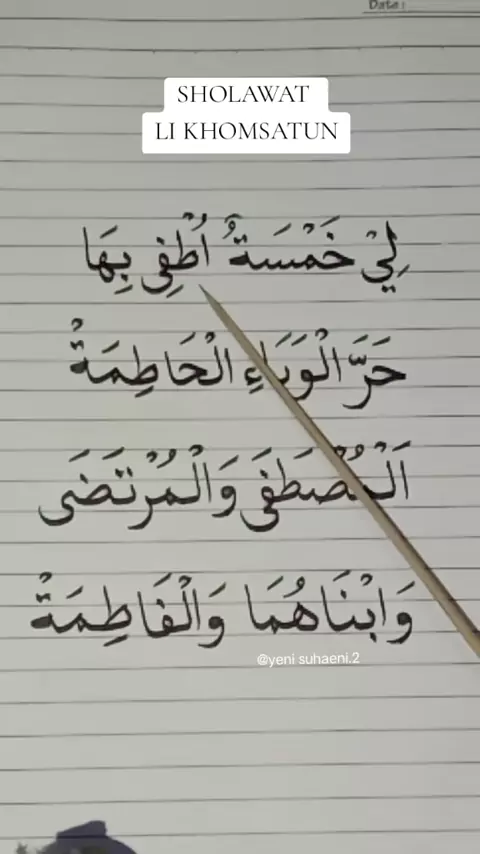 Date :
SHOLAWAT
LI KHOMSATUN
لِيْ خَمْسَةٌ أُطْفِى بِهَا
حَرَّ الْوَبَاءِ الْحَاطِمَةْ
اَلْمُصْطَفَى وَالْمُرْتَضَى
وَابْنَاهُمَا وَالْفَاطِمَةْ
@yeni suhaeni.2